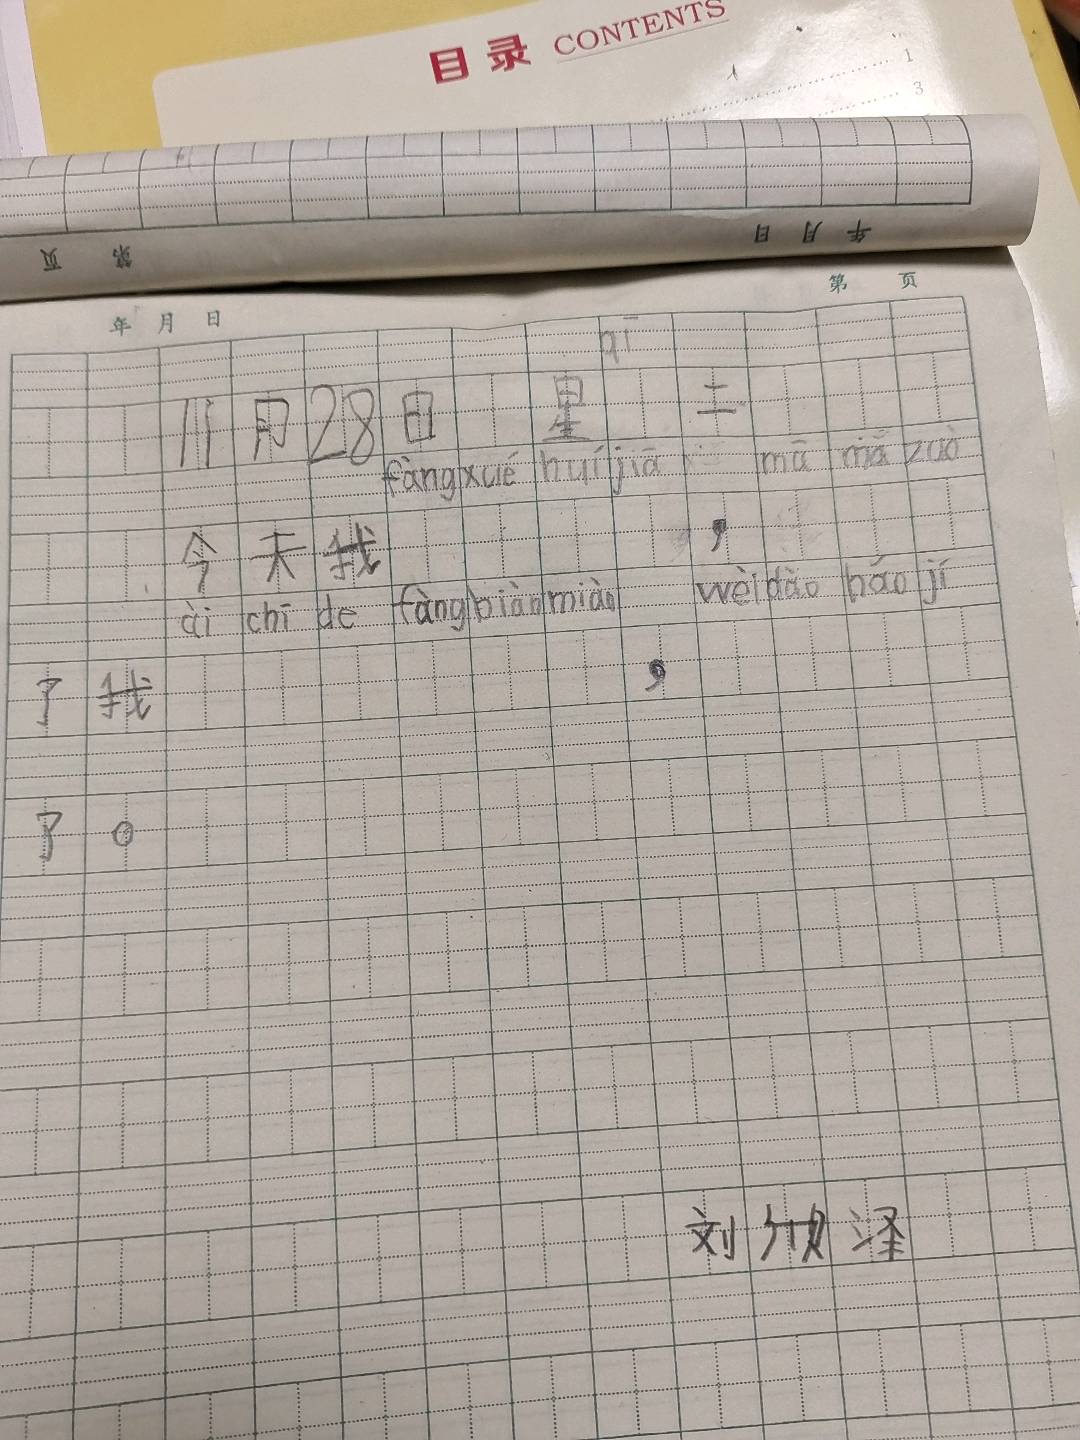 目录 CONTENTS
1
3
年 月 日
第 页
第 页
年 月 日
qī
11月28日 星 土
fàng xué huí jiā mā mā zuò
今天我 ，
ài chī de fàng biàn miàn wèi dào háo jí
了我 ，
了。
刘欣泽